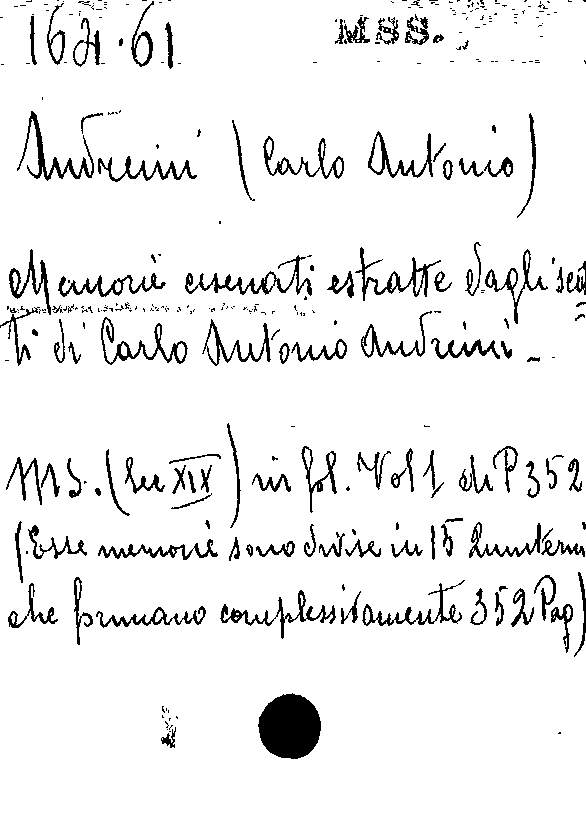 164.61 MSS.
Andreini (Carlo Antonio)
Memorie cesenati estratte dagli scrit
ti di Carlo Antonio Andreini -
MS. (Sec XIX) in fol. Vol 1 di P 352
(Esse memorie sono divise in 15 Quinterni
che formano complessivamente 352 Pag)